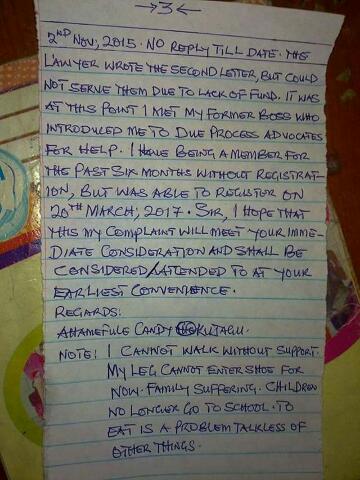 →3←
2ND NOV, 2015. NO REPLY TILL DATE. THE
LAWYER WROTE THE SECOND LETTER, BUT COULD
NOT SERVE THEM DUE TO LACK OF FUND. IT WAS
AT THIS POINT I MET MY FORMER BOSS WHO
INTRODUCED ME TO DUE PROCESS ADVOCATES
FOR HELP. I HAVE BEING A MEMBER FOR
THE PAST SIX MONTHS WITHOUT REGISTRAT-
ION, BUT WAS ABLE TO REGISTER ON
20TH MARCH, 2017. SIR, I HOPE THAT
THIS MY COMPLAINT WILL MEET YOUR IMME-
DIATE CONSIDERATION AND SHALL BE
CONSIDERED/ATTENDED TO AT YOUR
EARLIEST CONVENIENCE.
REGARDS:
AHAMEFULE CANDY
NOTE: I CANNOT WALK WITHOUT SUPPORT.
MY LEG CANNOT ENTER SHOE FOR
NOW. FAMILY SUFFERING. CHILDREN
NO LONGER GO TO SCHOOL. TO
EAT IS A PROBLEM TALKLESS OF
OTHER THINGS.